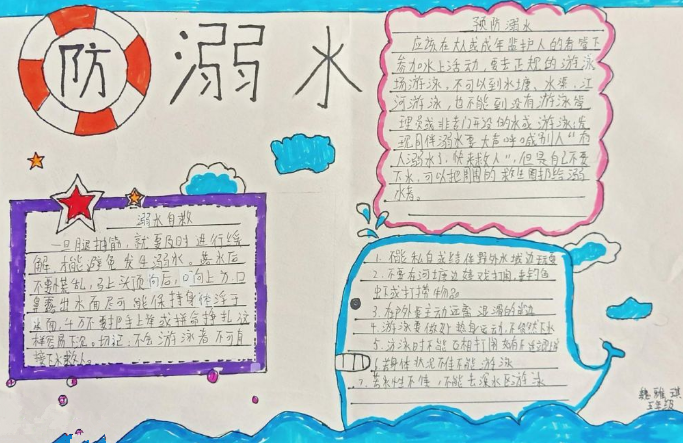 防溺水
预防溺水
应该在大人或成年监护人的看管下
参加水上活动,要去正规的游泳
场游泳,不可以到水塘、水渠、江
河游泳,也不能到没有游泳管
理员或非专门开设的水或游泳;发
现同伴溺水要大声呼喊别人“有
人溺水了,快来救人”,但是自己不要
下水,可以把周围的救生圈扔给溺
水者。
溺水自救
一旦腿抽筋,就要及时进行缓
解,才能避免发生溺水。落水后
不要慌乱,马上头顶向后,口向上方,口
鼻露出水面尽可能保持身体浮于
水面,千万不要把手上举或拼命挣扎,这
样容易下沉。切记,不会游泳者不可直
接下水救人。
1.不能私自或结伴野外水域边玩耍
2.不要在河塘边嬉戏打闹,垂钓鱼
虾或打捞物品
3.户外要主动远离湿滑的岸边
4.游泳要做好热身运动,不贸然下水
5.游泳时不能互相打闹
6.身体状况不佳不能游泳
不能去深水区游泳
五年级